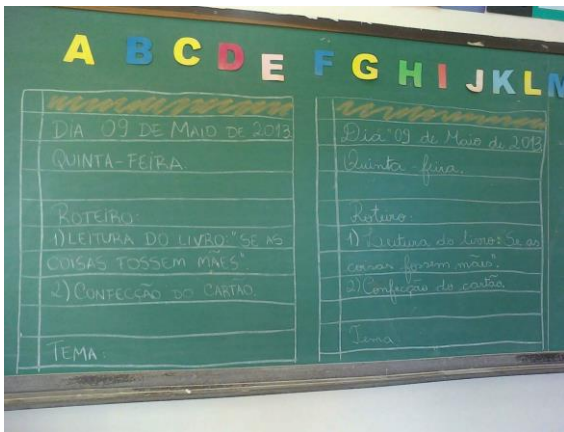 A B C D E F G H I J K L M
DIA 09 DE MAIO DE 2013
QUINTA-FEIRA.
ROTEIRO:
1) LEITURA DO LIVRO: "SE AS
COISAS FOSSEM MÃES".
2) CONFECÇÃO DO CARTÃO.
TEMA:
Dia 09 de Maio de 2013
Quinta-feira.
Roteiro:
1) Leitura do livro: "Se as
coisas fossem mães".
2) Confecção do cartão.
Tema: